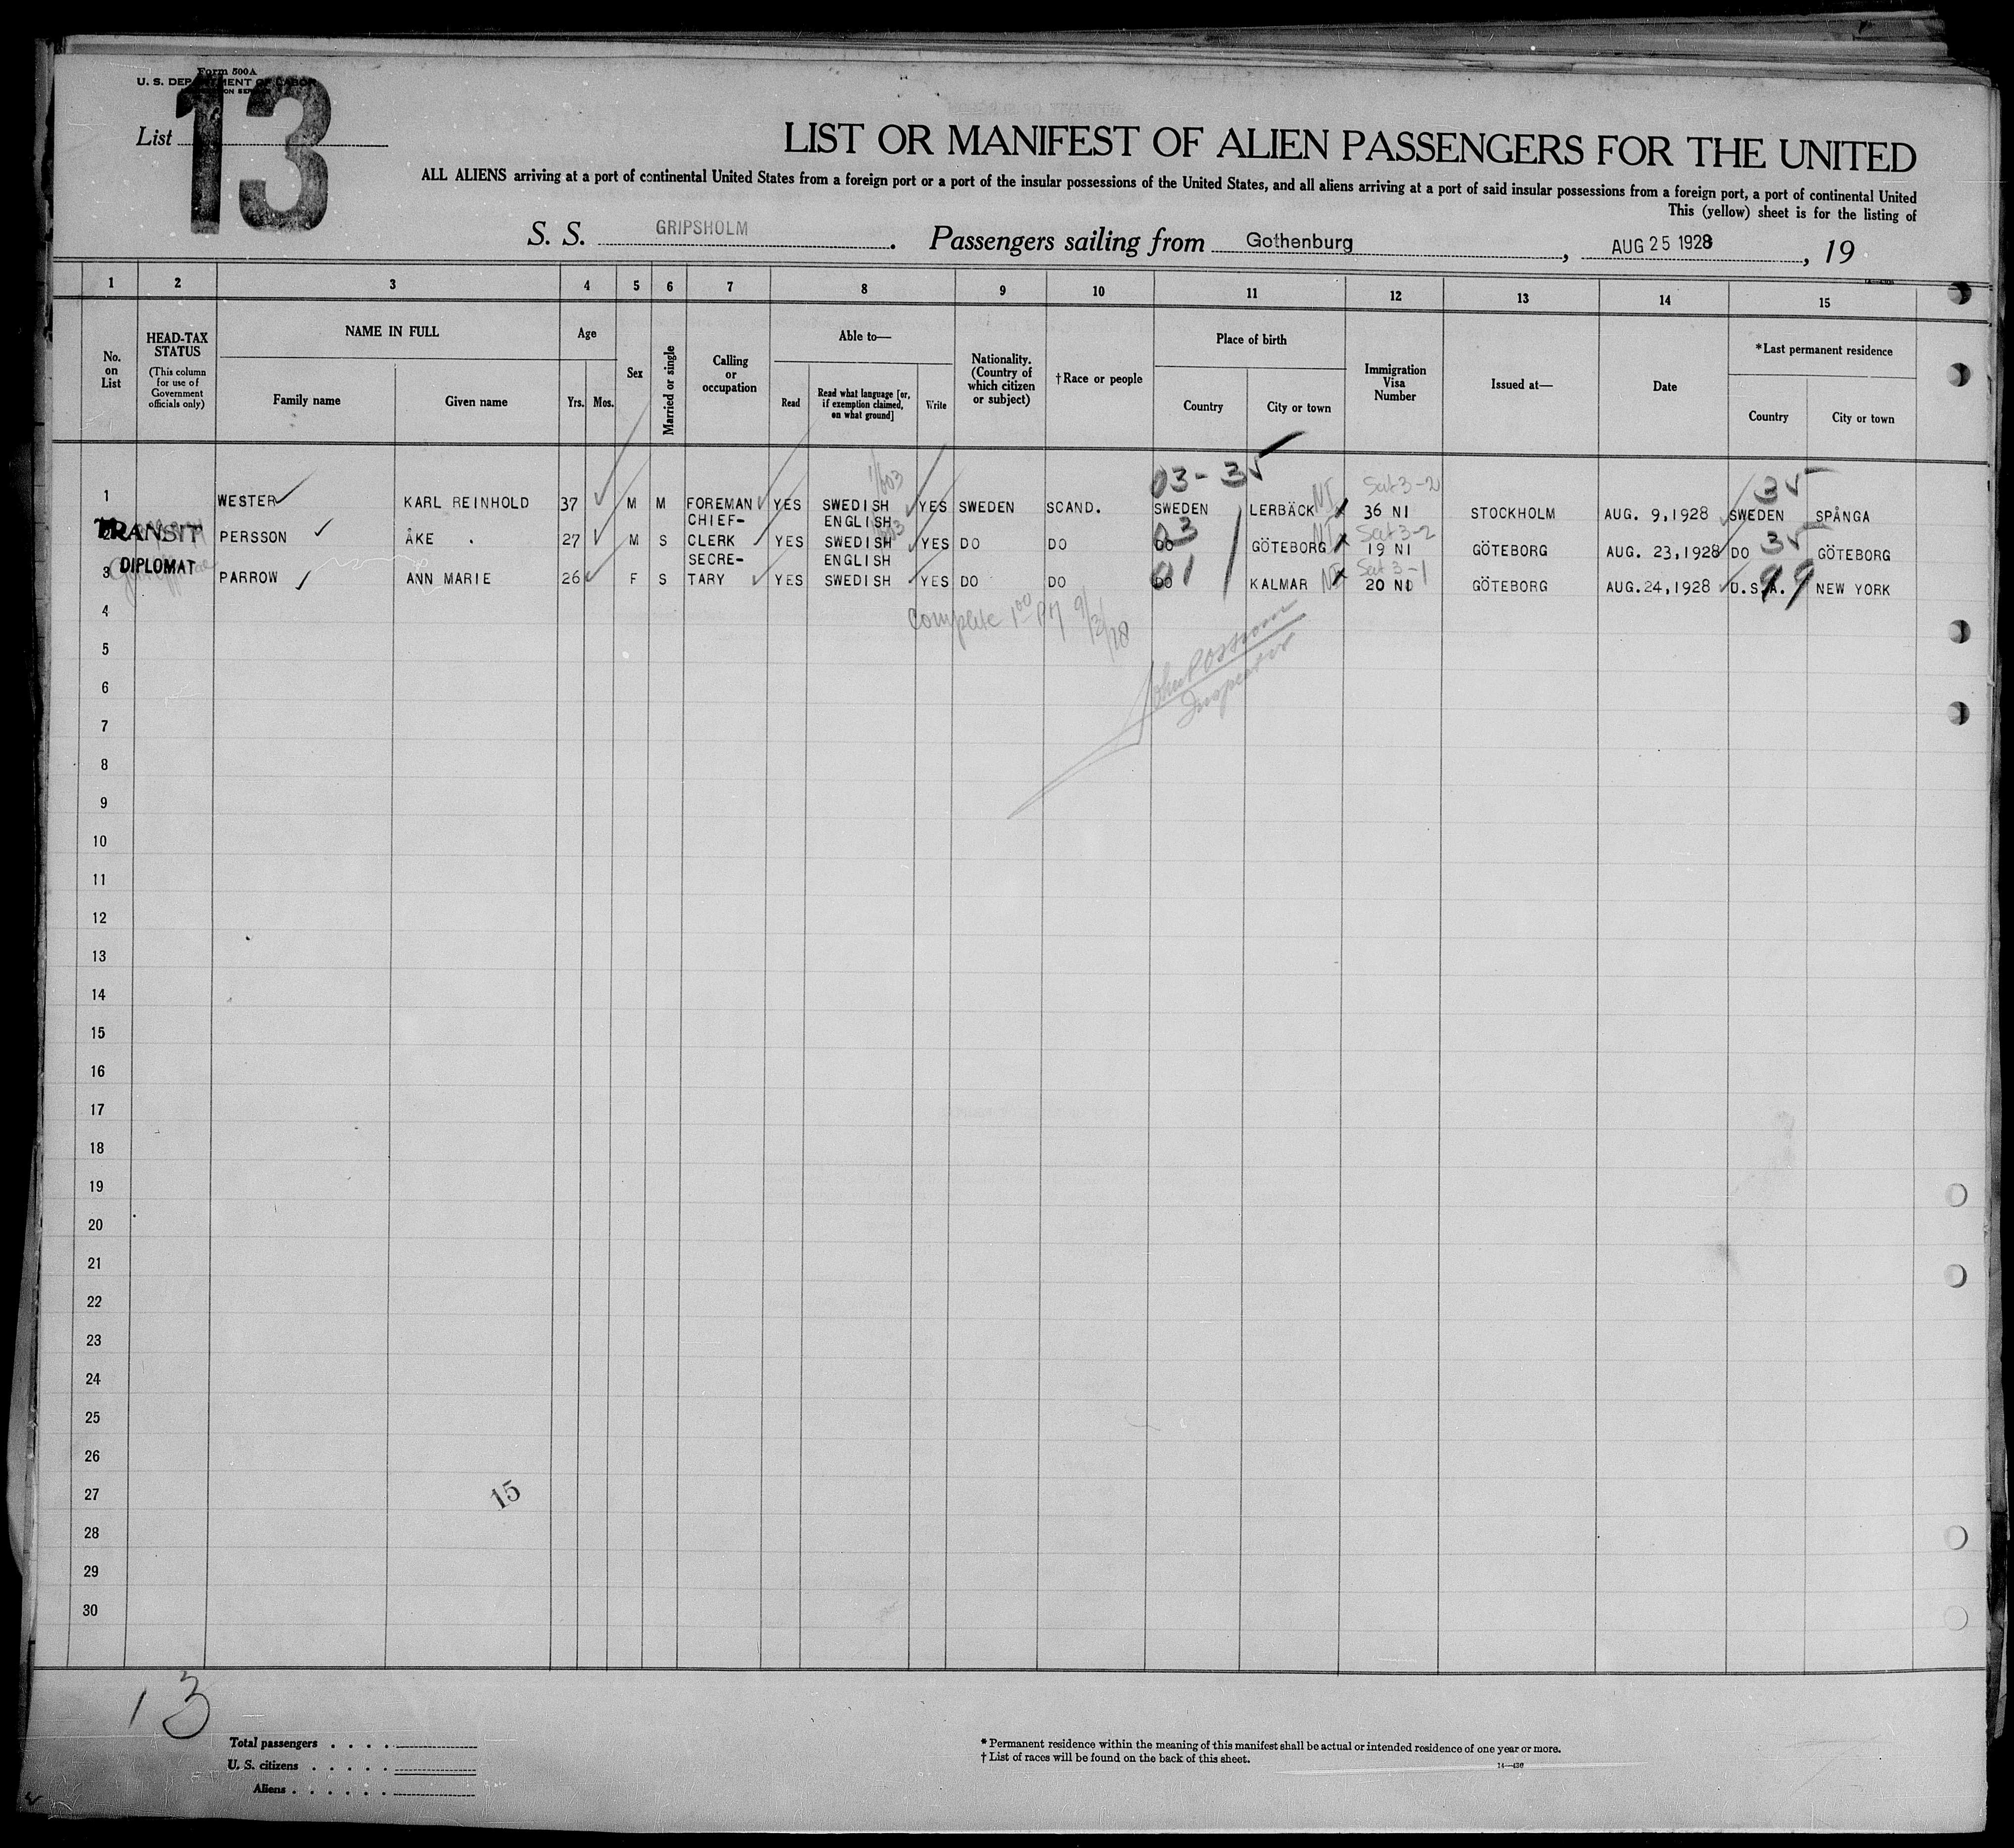 Form 500A
U. S. DEPARTMENT OF LABOR
List 13
LIST OR MANIFEST OF ALIEN PASSENGERS FOR THE UNITED
ALL ALIENS arriving at a port of continental United States from a foreign port or a port of the insular possessions of the United States, and all aliens arriving at a port of said insular possessions from a foreign port, a port of continental United
This (yellow) sheet is for the listing of
S. S. GRIPSHOLM. Passengers sailing from Gothenburg, AUG 25 1928, 19
1 2 3 4 5 6 7 8 9 10 11 12 13 14 15
No. on List
HEAD-TAX STATUS
(This column for use of Government officials only)
NAME IN FULL
Family name
Given name
Age
Yrs. Mos.
Sex
Married or single
Calling or occupation
Able to—
Read
Read what language [or, if exemption claimed, on what ground]
Write
Nationality. (Country of which citizen or subject)
†Race or people
Place of birth
Country
City or town
Immigration Visa Number
Issued at—
Date
*Last permanent residence
Country
City or town
03-3 35
1 WESTER KARL REINHOLD 37 M M FOREMAN YES SWEDISH YES SWEDEN SCAND. SWEDEN LERBÄCK 36 NI STOCKHOLM AUG. 9,1928 SWEDEN SPÅNGA
CHIEF- ENGLISH
TRANSIT
2 PERSSON ÅKE 27 M S CLERK YES SWEDISH YES DO DO DO GÖTEBORG 19 NI GÖTEBORG AUG. 23,1928 DO GÖTEBORG
SECRE- ENGLISH
DIPLOMAT
3 PARROW ANN MARIE 26 F S TARY YES SWEDISH YES DO DO DO KALMAR 20 NI GÖTEBORG AUG.24,1928 U.S.A. NEW YORK
Complete 1 00 PM 9/3/28
4
5
6
Inspector
7
8
9
10
11
12
13
14
15
16
17
18
19
20
21
22
23
24
25
26
27
15
28
29
30
13
Total passengers
U. S. citizens
Aliens
* Permanent residence within the meaning of this manifest shall be actual or intended residence of one year or more.
† List of races will be found on the back of this sheet.
14—430